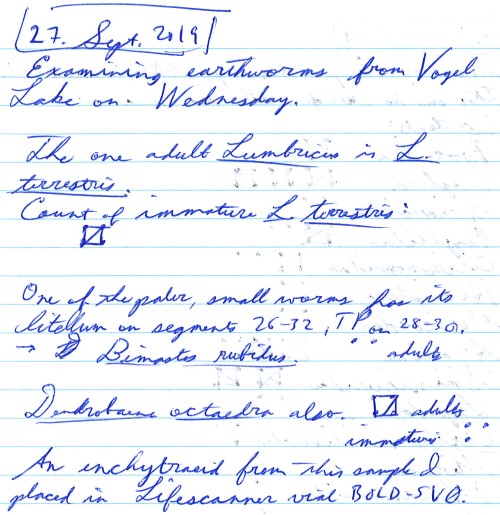 27. Sept. 2019
Examining earthworms from Vogel
Lake on Wednesday.
The one adult Lumbricus is L.
terrestris.
Count of immature L. terrestris:
One of the paler, small worms has its
clitellum on segments 26-32, TP on 28-30.
→ Bimastos rubidus. adults
Dendrobaena octaedra also. adults
immature
An enchytraeid from this sample I
placed in Lifescanner vial BOLD-5V0.